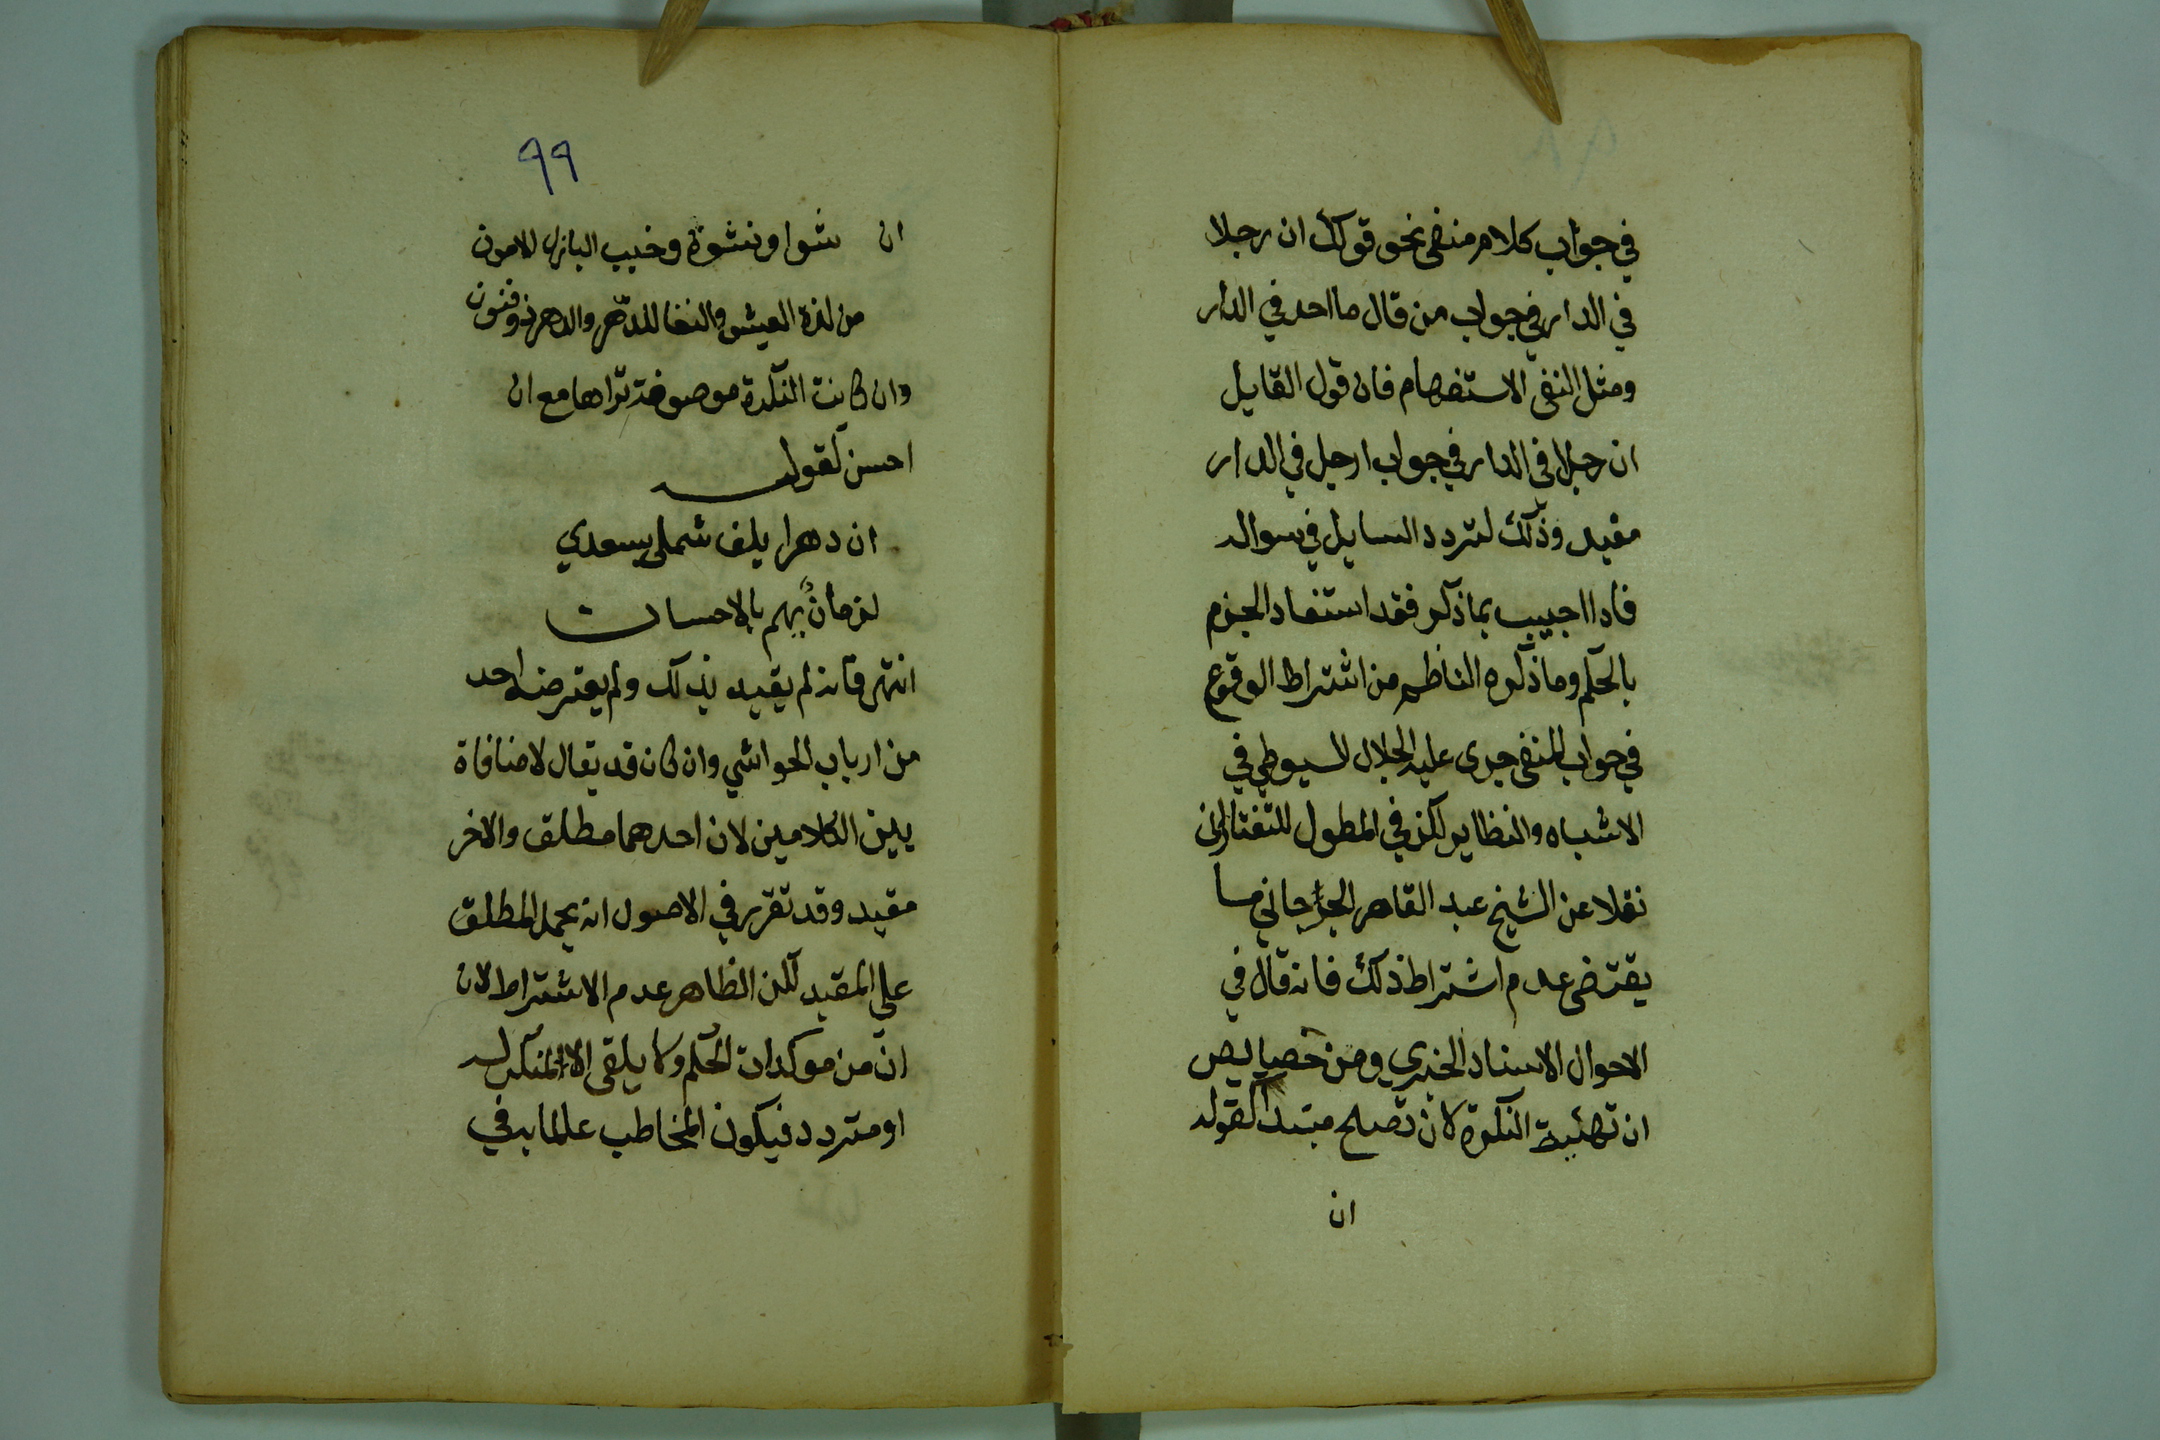 في جواب كلام منفي نحو قولك ان رجلا
في الدار في جواب من قال ما احد في الدار
ومثل النفي الاستفهام فان قول القايل
ان رجلا في الدار في جواب ارجل في الدار
مفيد وذلك لتردد السايل في سواله
فاذا اجيب بما ذكر فقد استفاد الجزم
بالحكم وما ذكره الناظم من اشتراط الوقوع
في جواب المنفي جرى عليه الجلال السيوطي في
الاشباه والنظاير لكن في المطول للتفتازاني
نقلا عن الشيخ عبد القاهر الجرجاني ما
يقتضي عدم اشتراط ذلك فانه قال في
الاحوال الاسناد الخبري ومن خصايص
ان تهئية النكرة لان تصلح مبتدا كقوله
ان
٩٩
ان شوا ونشوة وخبب البازل الامون
من لذة العيش والفتا للدهر والدهر ذو فنون
وان كانت النكرة موصوفة تراها مع ان
احسن كقوله
ان دهرا يلف شملي بسعدي
لزمان يهم بالاحسان
انتهى فانه لم يقيد بذلك ولم يعترضه احد
من ارباب الحواشي وان كان قد يقال لا منافاة
بين الكلامين لان احدهما مطلق والاخر
مقيد وقد تقرر في الاصول انه يحمل المطلق
على المقيد لكن الظاهر عدم الاشتراط لان
ان من موكدات الحكم ولا يلقى الا لمنكر له
او متردد فيكون المخاطب عالما به في